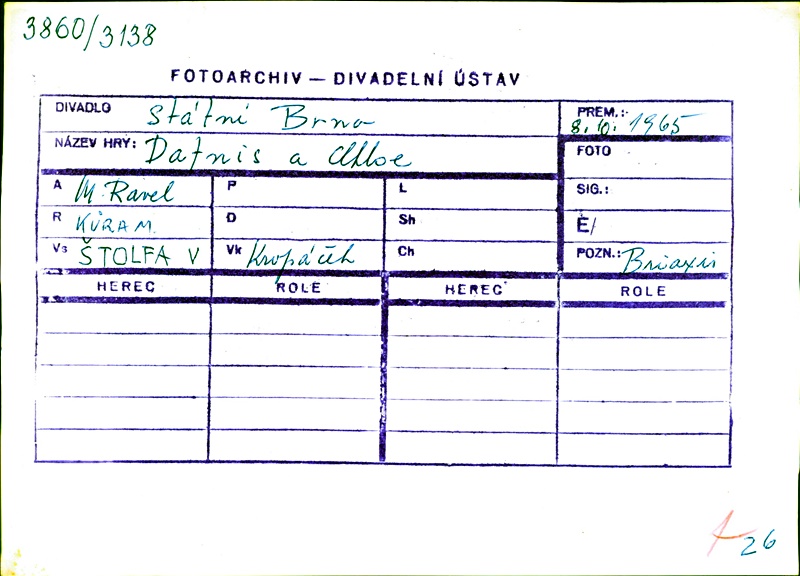 3860/3138
FOTOARCHIV — DIVADELNÍ ÚSTAV
DIVADLO Státní Brno
PREM.: 8.10. 1965
NÁZEV HRY: Dafnis a Chloe
FOTO
A M. Ravel P L SIG.:
R KŮRA M. D Sh Ė/
Vs ŠTOLFA V Vk Kropáček Ch POZN.: Briaxis
HEREC ROLE HEREC ROLE
26